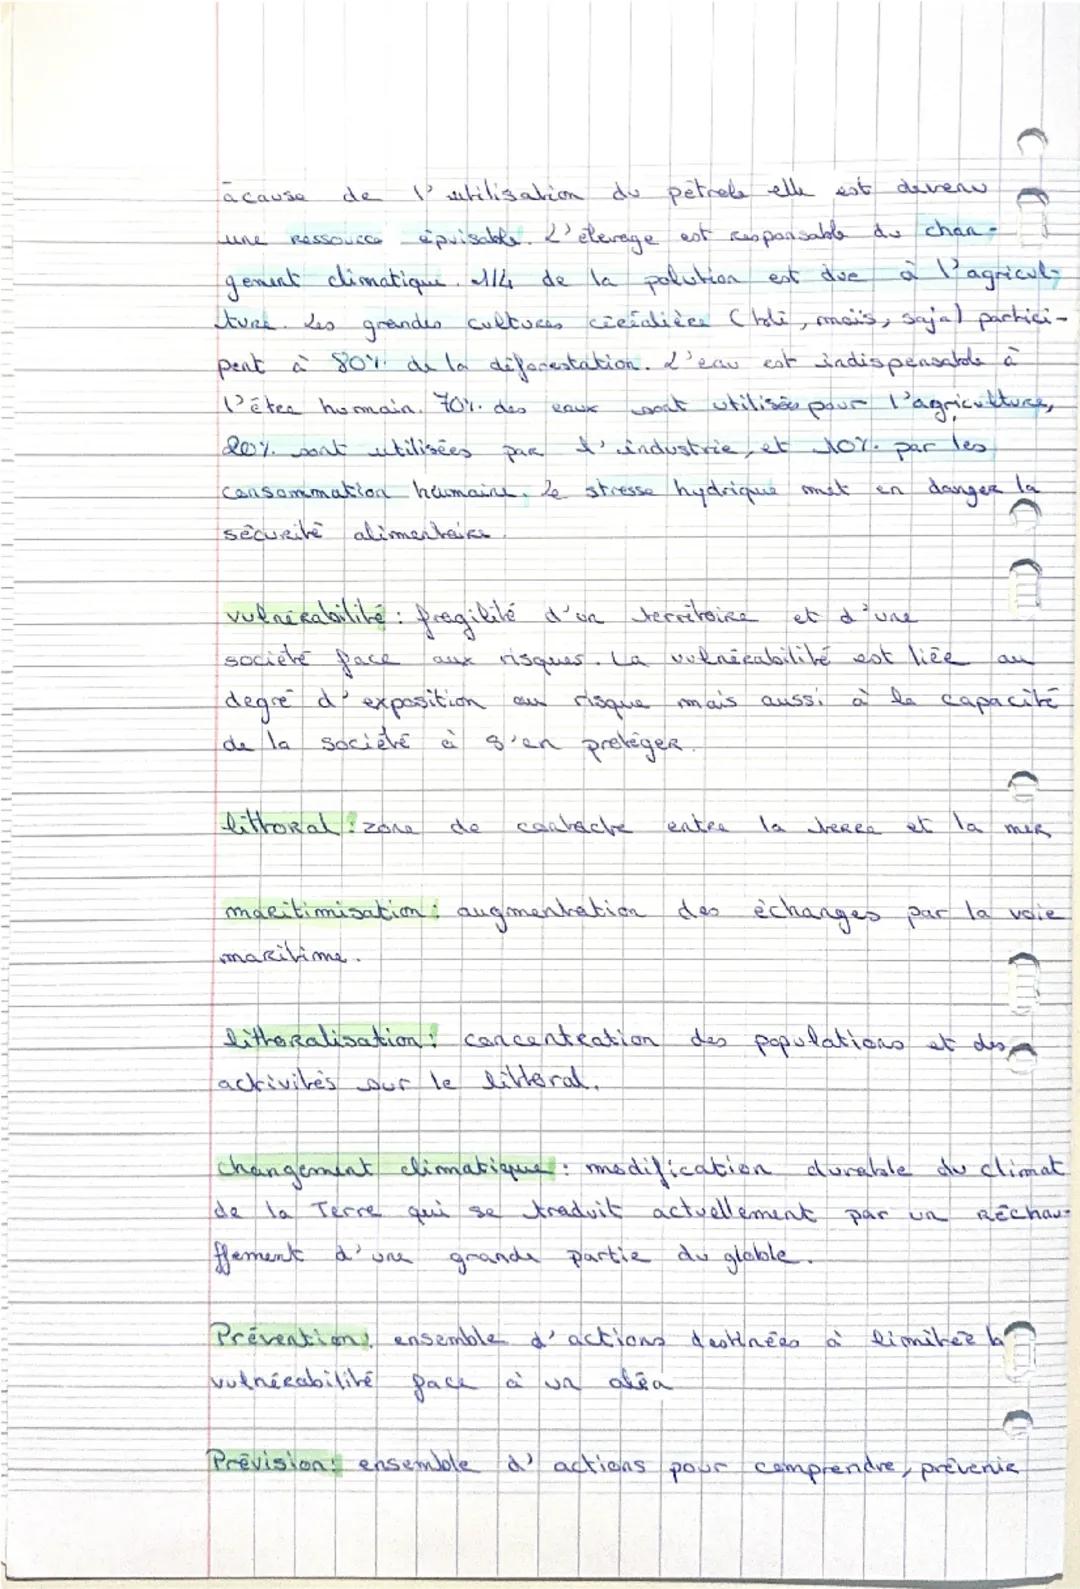 àcause de l'utilisation du pétrole elle est devenu
une ressource épuisable. L'élevage est responsable du chan-
gement climatique. 1/4 de la polution est due à l'agricul-
ture. Les grandes cultures céréalière (blé, maïs, soja) partici-
pent à 80% de la déforestation. L'eau est indispensable à
l'être humain. 70% des eaux sont utilisés pour l'agriculture,
20% sont utilisées par l'industrie, et 10% par les
consommation humaine. Le stresse hydrique met en danger la
sécurité alimentaire.
vulnérabilité : fragilité d'un territoire et d'une
société face aux risques. La vulnérabilité est liée au
degré d'exposition au risque mais aussi à la capacité
de la société à s'en protéger.
littoral : zone de contacte entre la terre et la mer
maritimisation : augmentation des échanges par la voie
maritime.
littoralisation : concentration des populations et des
activités sur le littoral.
changement climatique : modification durable du climat
de la Terre qui se traduit actuellement par un réchau-
ffement d'une grande partie du globle.
Prévention : ensemble d'actions destinées à limiter la
vulnérabilité face à un aléa
Prévision : ensemble d'actions pour comprendre, prévenir